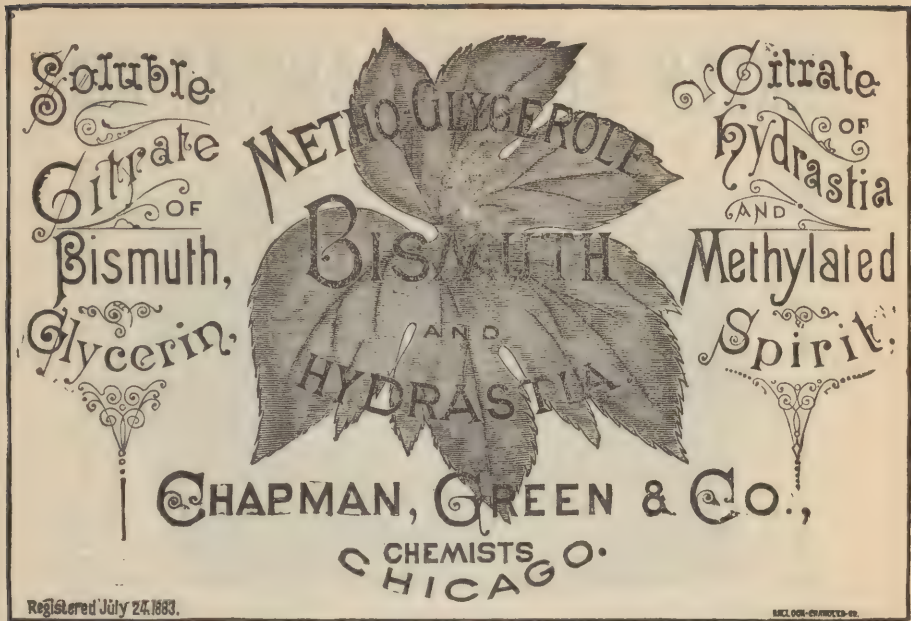 Soluble
Citrate
OF
Bismuth,
Glycerin,
METHO GLYCEROLE
BISMUTH
AND
HYDRASTIA
Citrate
OF
Hydrastia
AND
Methylated
Spirit.
CHAPMAN, GREEN & Co.,
CHEMISTS
CHICAGO.
Registered July 24. 1883.